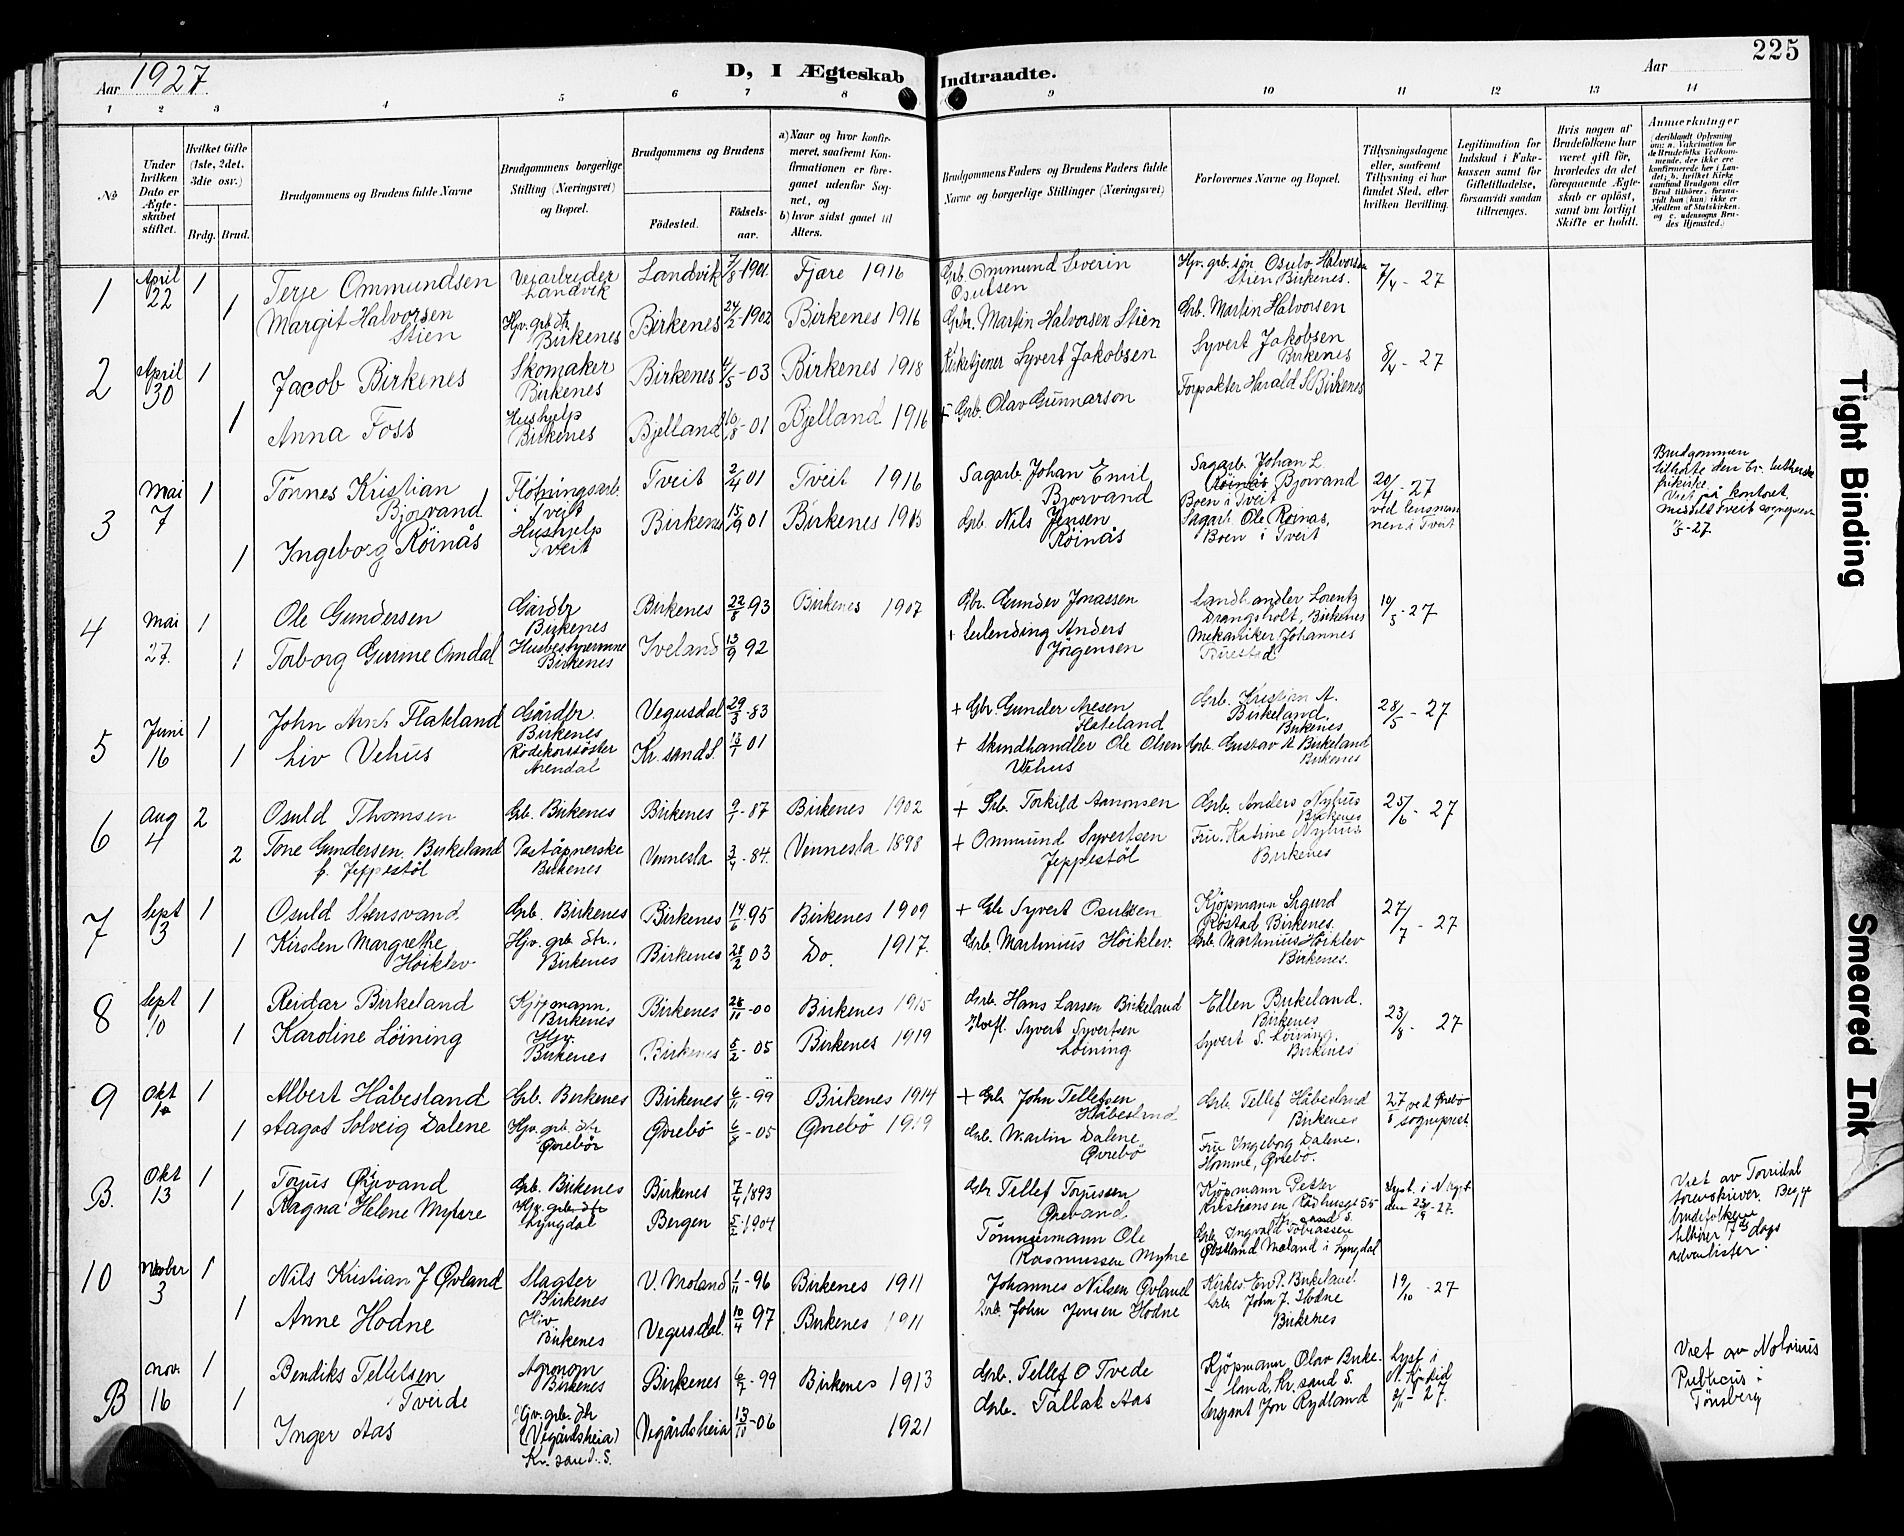 225
Aar 1927.
D, I Ægteskab Indtraadte.
Aar
1 2 3 4 5 6 7 8 9 10 11 12 13 14
No
Under hvilken Dato er Ægteskabet stiftet.
Hvilket Gifte (1ste, 2det, 3die osv.)
Brdg. Brud.
Brudgommens og Brudens fulde Navne
Brudgommens borgerlige Stilling (Næringsvei) og Bopæl.
Brudgommens og Brudens
Fødested.
Fødselsaar.
a) Naar og hvor konfirmeret, saafremt Konfirmationen er foregaaet udenfor Sognet, og
b) hvor sidst gaaet til Alters.
Brudgommens Faders og Brudens Faders fulde Navne og borgerlige Stillinger (Næringsvei)
Forlovernes Navne og Bopæl.
Tillysningsdagene eller, saafremt Tillysning ei har fundet Sted, efter hvilken Bevilling.
Legitimation for Indskud i Enkekassen samt for Giftetilladelse, forsaavidt saadan tiltrænges.
Hvis nogen af Brudefolkene har været gift før, hvorledes da det foregaaende Ægteskab er opløst, samt om lovligt Skifte er holdt.
Anmerkninger (deriblandt Oplysning om: a. Vaccination for de Brudefolks Vedkommende, der ikke ere konfirmerede her i Landet; b. hvilket Kirkesamfund Brudgom eller Brud tilhører, forsaavidt han (hun) ikke er Medlem af Statskirken, og c. udensogns Brudes Hjemsted.)
1 April 22 1 Terje Ommundsen Veiarbeider Landvik Landvik 7/8 1901 Fjære 1916 Grb. Ommund Severin Osulsen Hjv. grb. søn Osulv Halvorsen Stien Birkenes. 7/4 - 27
1 Margit Halvorsen Stien Hjv. grb. dtr. Birkenes Birkenes 24/2 1902 Birkenes 1916 Gbr. Martin Halvorsen Stien Grb. Martin Halvorsen
2 April 30 1 Jacob Birkenes Skomaker Birkenes Birkenes 4/5 - 03 Birkenes 1918 Kirketjener Syvert Jakobsen Syvert Jakobsen Birkenes 8/4 - 27
1 Anna Foss Hushjelp Birkenes Bjelland 10/8 - 01 Bjelland 1916 + Grb. Olav Gunnarson Forpakter Harald S Birkenes
3 Mai 7 1 Tönnes Kristian Bjorvand Flötningsarb. i Tveit Tveit 2/4 01 Tveit 1916 Sagarb. Johan Emil Bjorvand Sagarb. Johan L Bjorvand Boen i Tveit 20/4 - 27 ved lensmannen i Tveit
1 Ingeborg Röinås Hushjelp Tveit Birkenes 15/9 01 Birkenes 1915 Grb. Nils Jensen Röinås Sagarb. Ole Roinas, Boen i Tveit
Brudgommen tilhørte den Ev. lutherske frikirke. Viet på kontoret, meldt Tveit sogneprest
4 Mai 27. 1 Ole Gundersen Gårdbr Birkenes Birkenes 22/8 93 Birkenes 1907 Gbr. Gunder Jonassen Landhandler Lorentz Drangsholt, Birkenes 10/5 - 27
1 Torborg Gurine Omdal Husbestyrerinne Birkenes Iveland 13/9 92 + Leilending Anders Jörgensen Mekaniker Johannes
5 Juni 16 1 John Flateland Gårdbr. Birkenes Vegusdal 29/3 - 83 + Gbr. Gunder Flateland Grb. Kristian A. Birkeland, Birkenes 28/5 - 27
1 Liv Vehus Rödekorssöster Arendal Kr. sand S. 13/1 01 + Skindhandler Ole Olsen Vehus Grb. Gustav A Birkeland Birkenes
6 Aug 4 2 Osuld Thomsen Grb. Birkenes Birkenes 9/1 - 87 Birkenes 1902 + Grb. Torkild Aanonsen Grb. Anders Nyhus Birkenes 25/6 - 27
2 Tone Gundersen Birkeland f. Jeppestöl Postâpnerske Birkenes Vennesla 3/4 - 84. Vennesla 1898 + Ommund Syvertsen Jeppestöl Fru Katrine Nyhus Birkenes
7 Sept 3 1 Osuld Stensvand Grb. Birkenes Birkenes 14/6 95 Birkenes 1909 + Gbr Syvert Osuldsen Kjöpmann Sigurd Röstad Birkenes. 27/7 - 27
1 Kirsten Margrethe Höiklev Hjv. grb. dtr. Birkenes Birkenes 28/2 03 Do. 1917. Grb. Martinius Höiklev. Grb. Martinius Höiklev Birkenes.
8 Sept 10 1 Reidar Birkeland Kjöpmann. Birkenes Birkenes 28/11 - 00 Birkenes 1915 Grb. Hans Larsen Birkeland Ellen Birkeland. Birkenes 23/8 - 27
1 Karoline Löining Hjv. Birkenes Birkenes 5/2 - 05 Birkenes 1919 Syvert Syvertsen Löining Syvert S. Löining. Birkenes
9 Okt 1 Albert Håbesland Grb. Birkenes Birkenes 6/11 - 99 Birkenes 1914 + Grb John Tellefsen Håbesland Grb. Tellef Håbesland Birkenes 27 ved Øvrebø sogneprest
1 Aagot Solveig Dalene Hjv. grb. dtr Øvrebö Øvrebö - 05 Øvrebö 1919 Grb. Martin Dalene Øvrebö Fru Ingeborg Dalene, Homme, Øvrebö.
B. Okt 13 1 Torjus Grb. Birkenes Birkenes 7/4 1893 Gbr Tellef Torjussen Kjöpmann Petter Kristensen Rådhusgt 55 Kr. sand S. Lyst. i
1 Ragna Helene Myhre Hjv. grb. dtr Lyngdal Bergen 5/2 - 1904 Tömmermann Ole Rasmussen Myhre Grb. Ingvald Tobiassen Møland i Lyngdal
Viet av Torridal sorenskriver. Begge brudefolkene tilhører 7de dags adventister.
10 3 1 Nils Kristian J Øvland Slagter Birkenes V. Moland 1/11 - 96 Birkenes 1911 Johannes Nilsen Øvland Kirkes. En P. Birkeland. 19/10 - 27
1 Anne Hodne Hjv Birkenes Vegusdal. 10/4 97 Birkenes 1911 Grb. John Jensen Hodne Grb. John J. Hodne Birkenes
B nov. 16 1 Bendiks Tellefsen Tveide Agronom Birkenes Birkenes - 99 Birkenes 1913 Grb. Tellef O Tvede Kjöpmann Olav Birkeland, Kr. sand S. Lyst i - 27.
1 Inger Aas Hjv. grb. dtr (Vegårdsheia) Kr. sand. S. Vegårdsheia 13/11 - 06 1921 Grb. Tallak Aas Sersjant Jon Rydland
Viet av Notarius Publicus i Tönsberg
Tight Binding
Smeared Ink